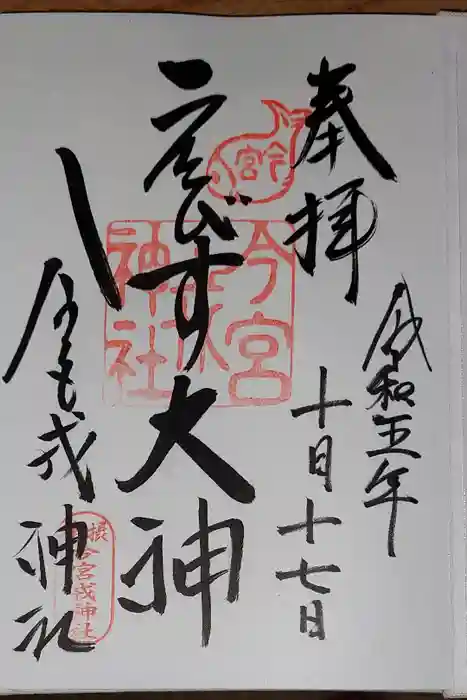 奉拝
令和五年
十月十七日
今宮
ゑびす大神
今宮戎神社
今宮戎神社
摂
今宮戎神社